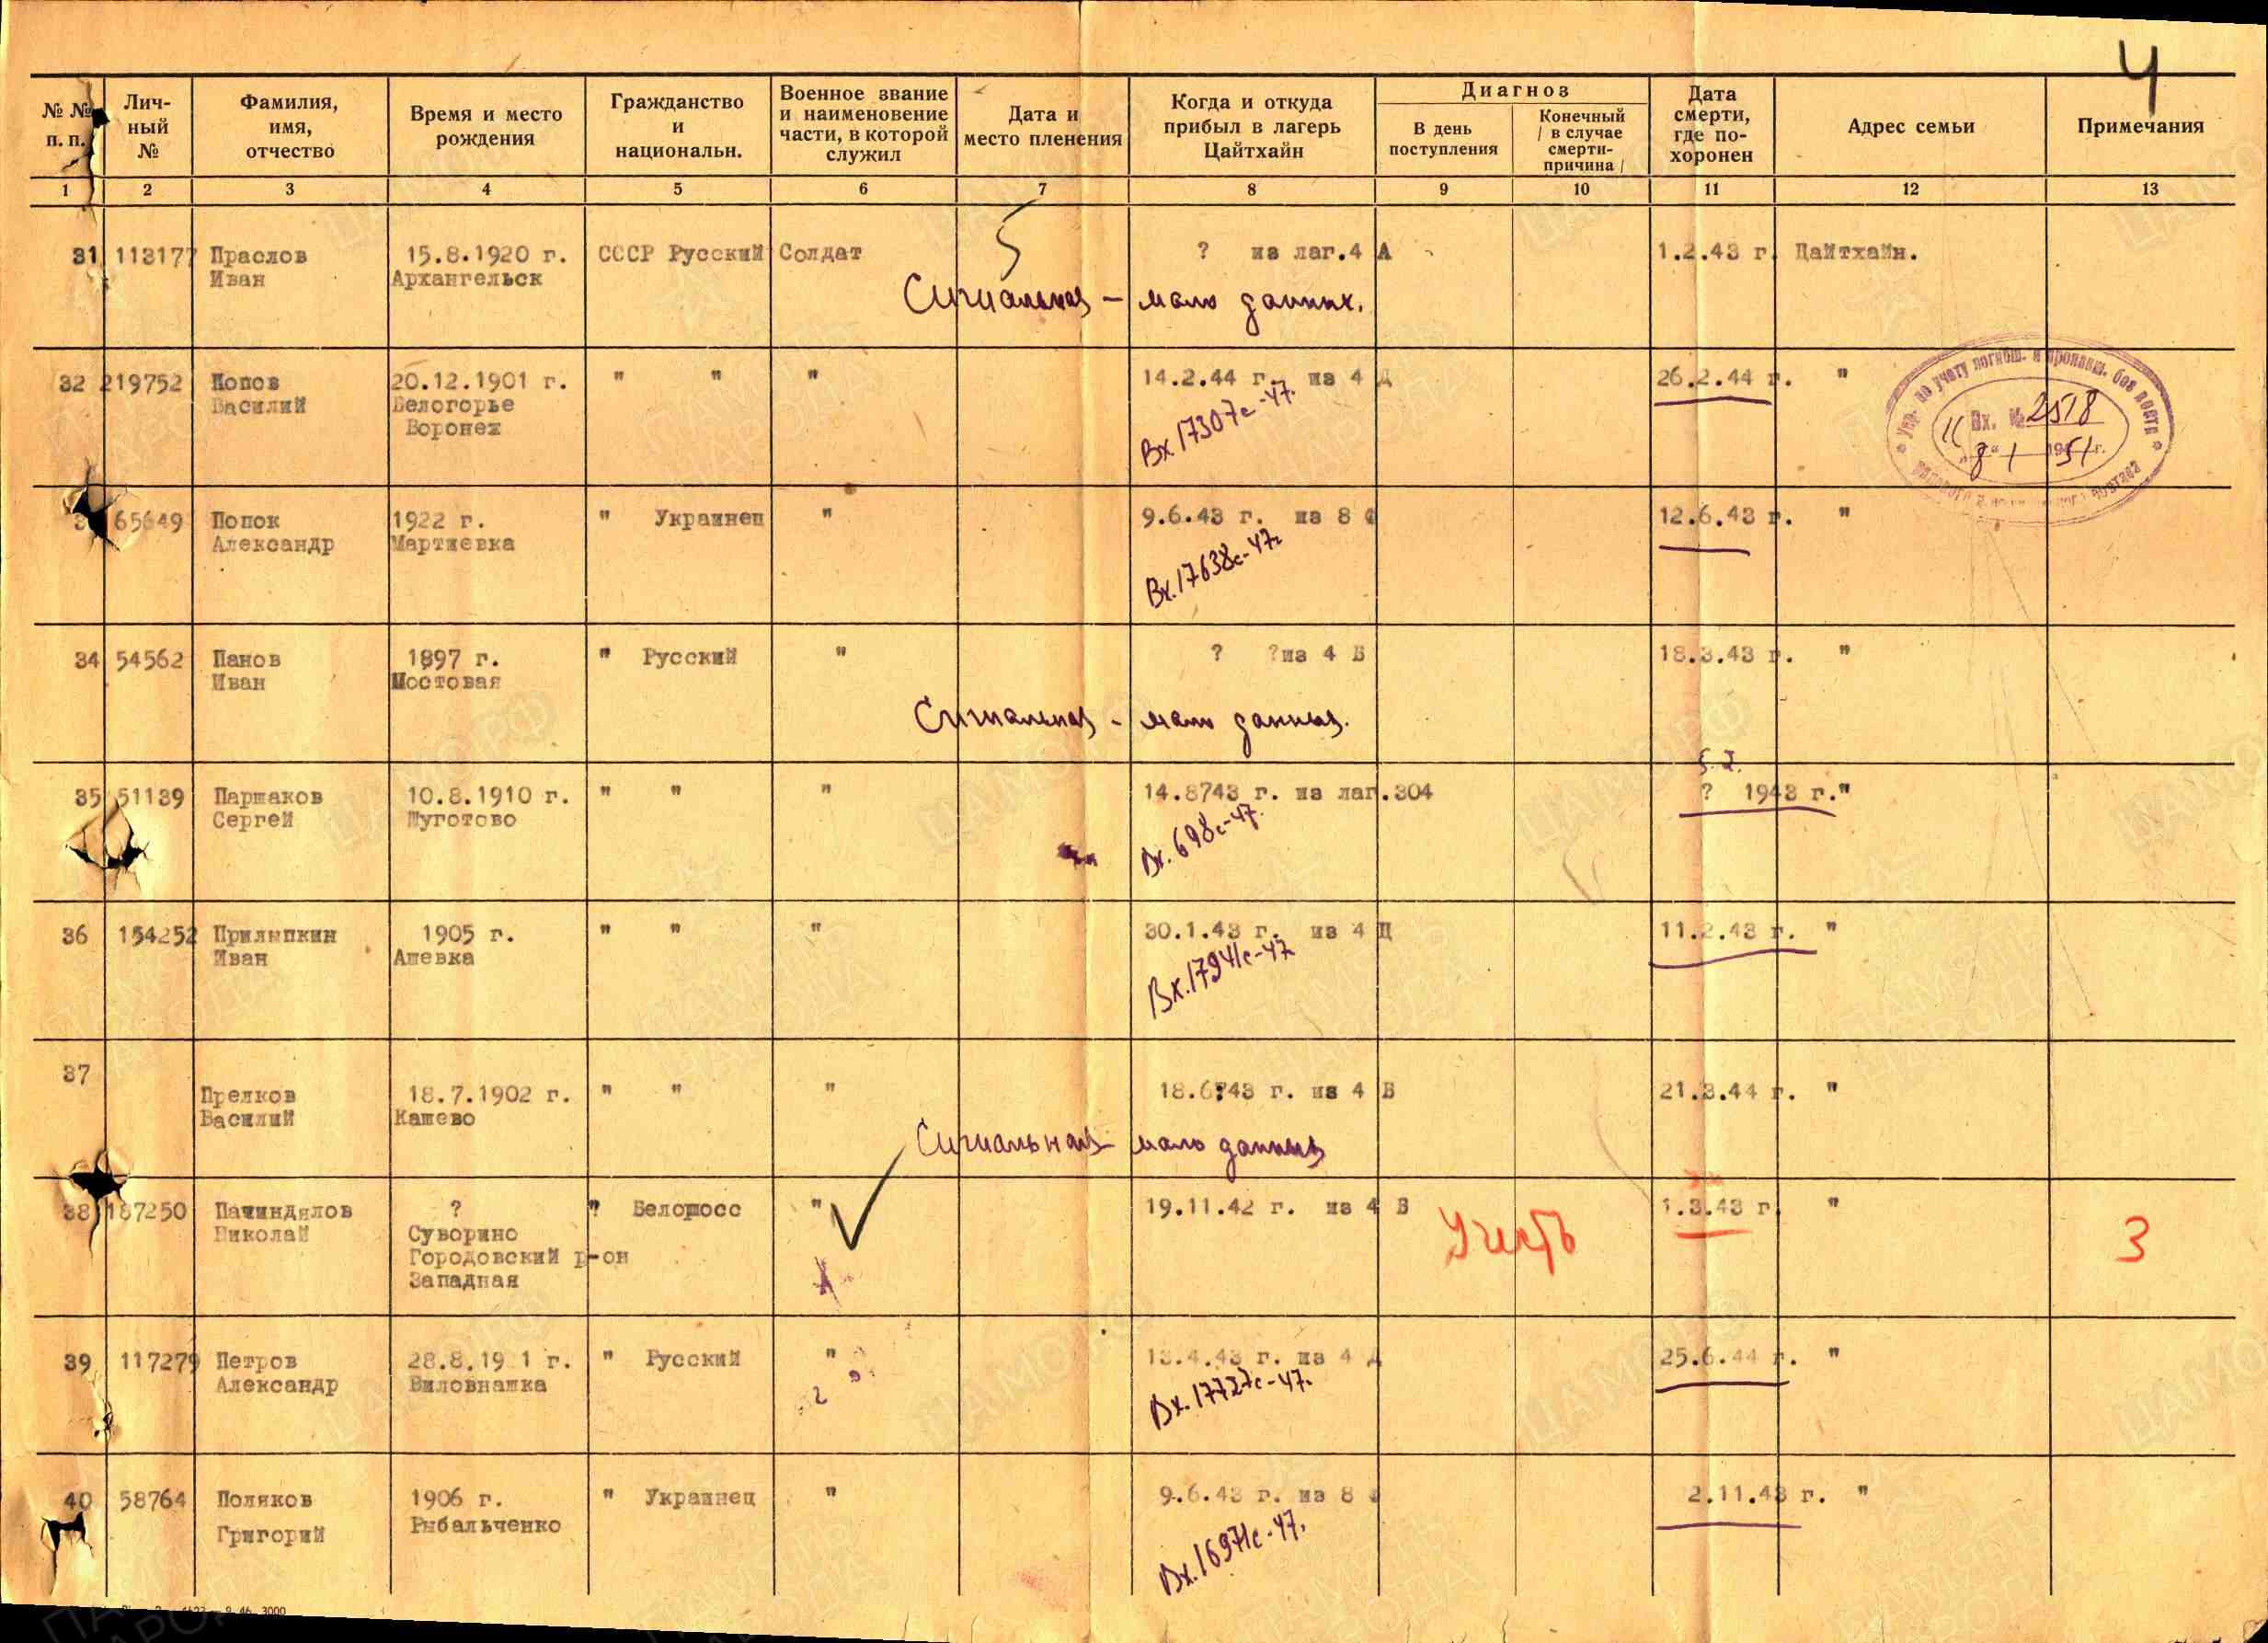 4
№ №
п. п.
Лич-
ный
№
Фамилия,
имя,
отчество
Время и место
рождения
Гражданство
и
национальн.
Военное звание
и наименовение
части, в которой
служил
Дата и
место пленения
Когда и откуда
прибыл в лагерь
Цайтхайн
Диагноз
В день
поступления
Конечный
/ в случае
смерти-
причина /
Дата
смерти,
где по-
хоронен
Адрес семьи
Примечания
1 2 3 4 5 6 7 8 9 10 11 12 13
31 113177 Праслов 15.8.1920 г. СССР Русский Солдат ? из лаг.4 А 1.2.43 г. Цайтхайн.
Иван Архангельск
5
Сигнальная - мало данных.
32 219752 Попов 20.12.1901 г. " " " 14.2.44 г. из 4 Д 26.2.44 г. "
Василий Белогорье
Воронеж
Вх 17307с-47.
Упр. по учету погибш. и пропавш. без вести
Вх. № 2518
8 1 1951 г.
65649 Попок 1922 г. " Украинец " 9.6.43 г. из 8 Ф 12.6.43 г. "
Александр Мартиевка
Вх.17638с-47г
34 54562 Панов 1897 г. " Русский " ? ?из 4 Б 18.3.43 г. "
Иван Мостовая
Сигнальная - мало данных.
35 51139 Паршаков 10.8.1910 г. " " " 14.8743 г. из лаг.304 ? 1943 г."
Сергей Шуготово
Вх. 698с-47.
36 154252 Прилыпкин 1905 г. " " " 30.1.43 г. из 4 Ц 11.2.43 г. "
Иван Ашевка
Вх.17941с-47
37
Прелков 18.7.1902 г. " " " 18.6743 г. из 4 В 21.3.44 г. "
Василий Кашево
Сигнальная мало данных
38 187250 Пачиндялов ? " Белорросс " 19.11.42 г. из 4 В 1.3.43 г. "
Николай Суворино
Городовский р-он
Западная
Учесть
3
39 117279 Петров 28.8.19 1 г. " Русский " 13.4.43 г. из 4 Д 25.6.44 г. "
Александр Виловнашка
Вх.17727с-47.
40 58764 Поляков 1906 г. " Украинец " 9.6.43 г. из 8 Ф 2.11.43 г. "
Григорий Рыбальченко
Вх.16971с-47.